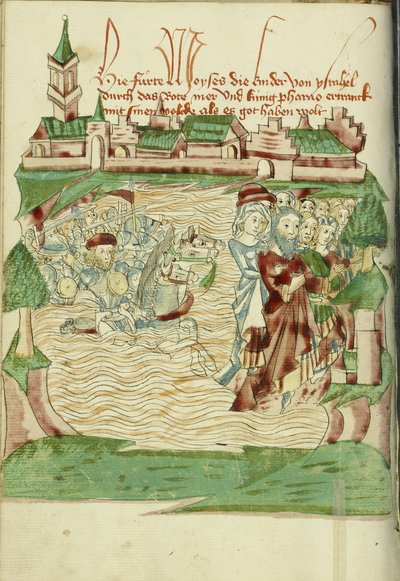 Hie fürte Moyses die kinder von ysrahel
durch das Rote mer und kúnig pharao ertranck
mit sinen volcke als es got haben wolt